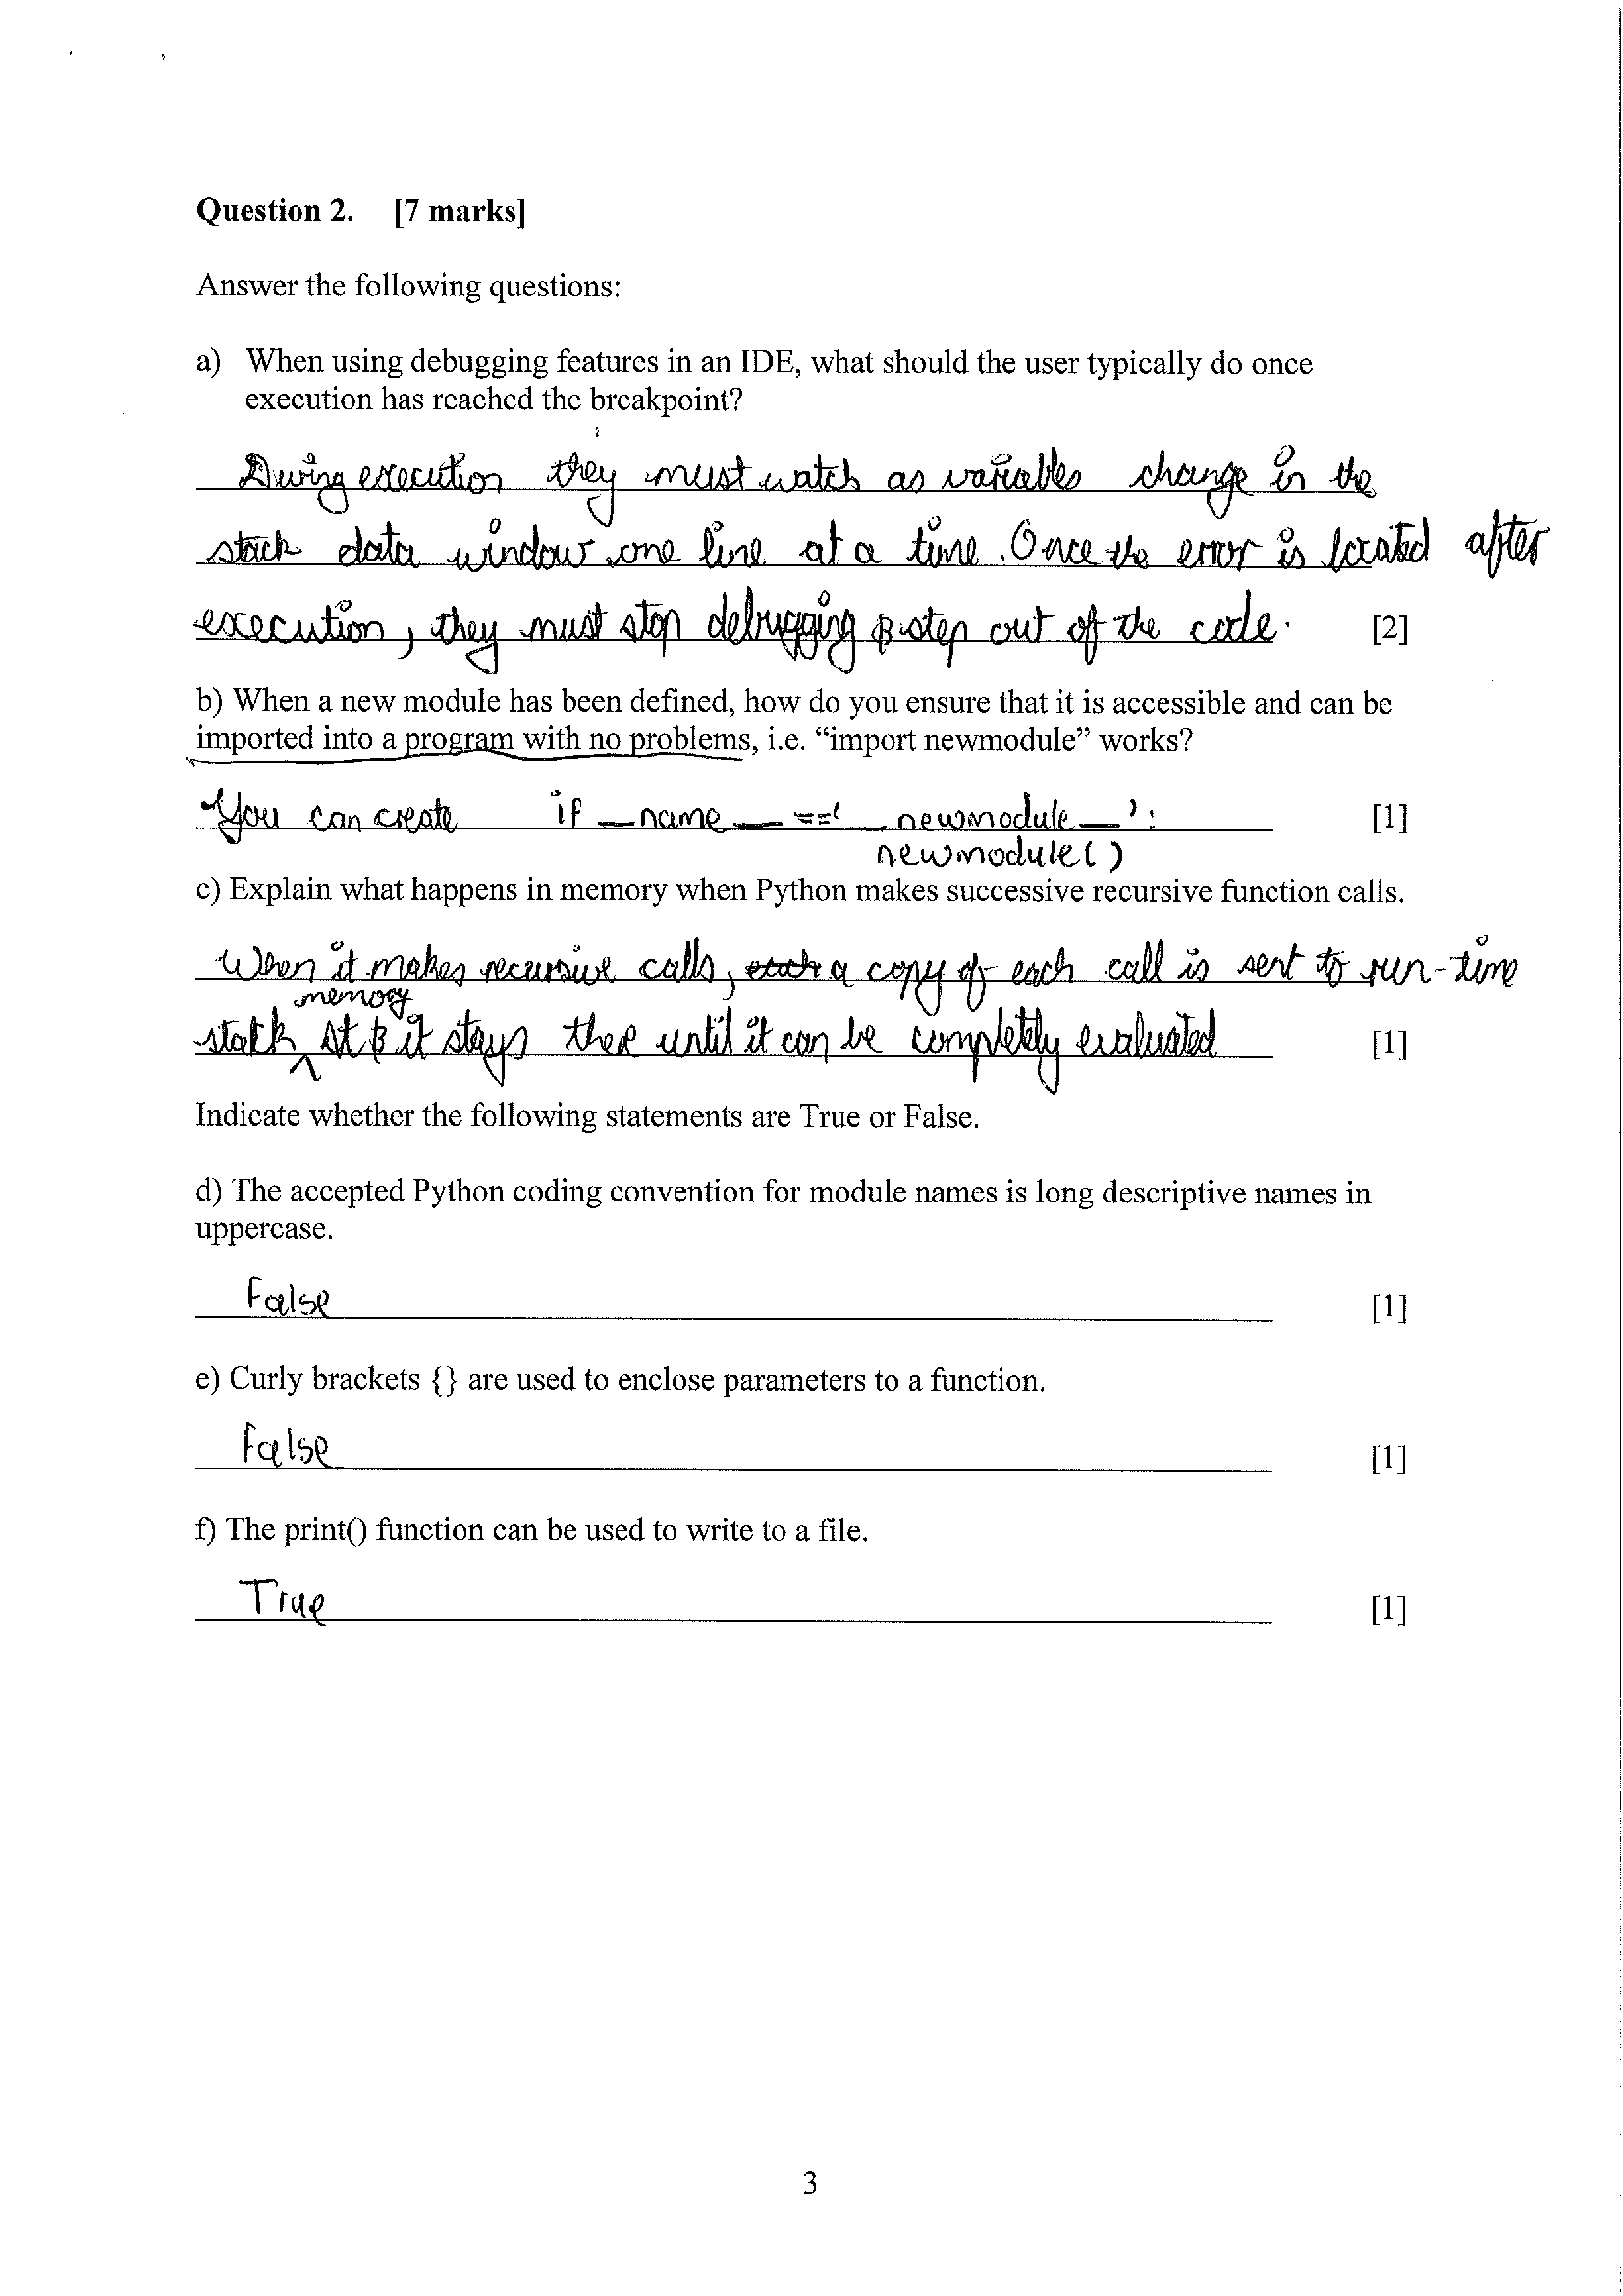 Question 2. [7 marks]
Answer the following questions:
a) When using debugging features in an IDE, what should the user typically do once
execution has reached the breakpoint?
During execution they must watch as variables change in the
stack data window one line at a time. Once the error is located after
execution, they must stop debugging & step out of the code. [2]
b) When a new module has been defined, how do you ensure that it is accessible and can be
imported into a program with no problems, i.e. “import newmodule” works?
You can create if __name__ == '__newmodule__': [1]
newmodule()
c) Explain what happens in memory when Python makes successive recursive function calls.
When it makes recursive calls, each a copy of each call is sent to run-time
memory
stack & it stays there until it can be completely evaluated [1]
Indicate whether the following statements are True or False.
d) The accepted Python coding convention for module names is long descriptive names in
uppercase.
False [1]
e) Curly brackets {} are used to enclose parameters to a function.
False [1]
f) The print() function can be used to write to a file.
True [1]
3